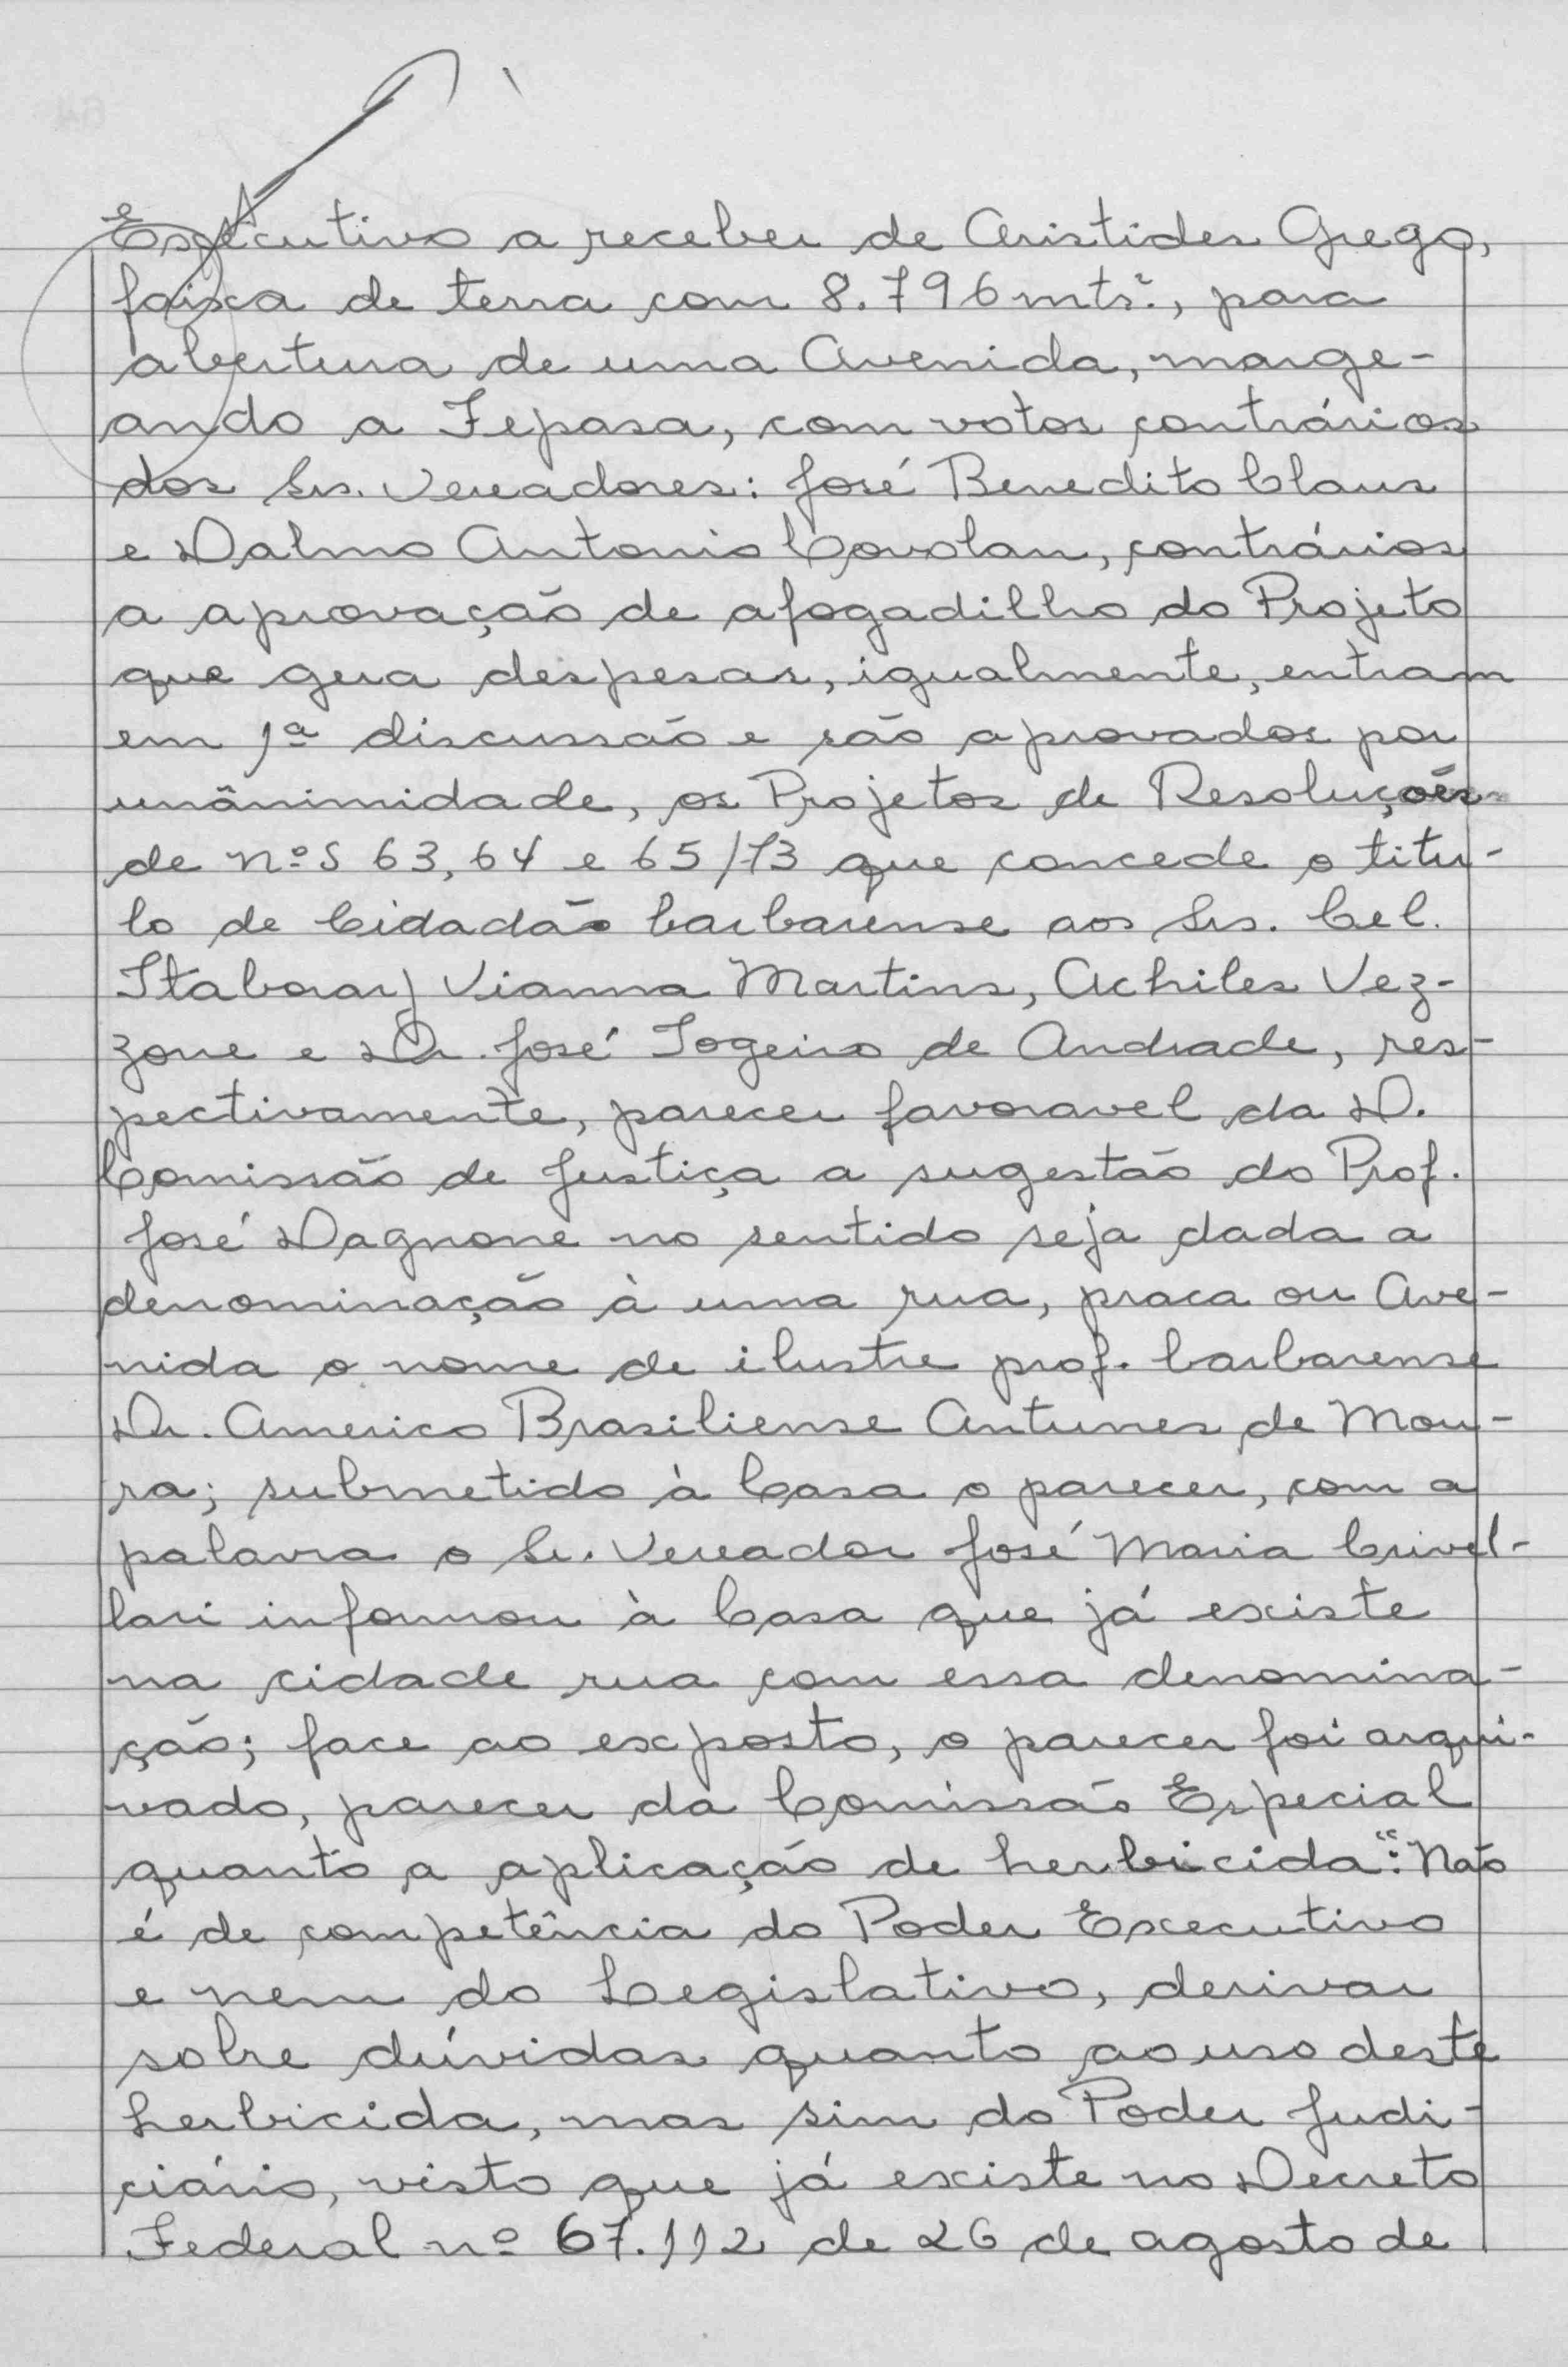 Executivo a receber de Aristides Grego,
faixa de terra com 8.796 mts²., para
abertura de uma Avenida, marge-
ando a Fepasa, com votos contrários
dos Srs. Vereadores: José Benedito Claus
e Dalmo Antonio Covolan, contrários
a aprovação de afogadilho do Projeto
que gera despesas, igualmente, entram
em 1ª discussão e são aprovados por
unânimidade, os Projetos de Resoluções
de nºs 63, 64 e 65/73 que concede o titu-
lo de Cidadão barbarense aos Srs. Cel.
Itaboray Vianna Martins, Achiles Vez-
zone e Dr. José Togeiro de Andrade, res-
pectivamente, parecer favoravel da D.
Comissão de Justiça a sugestão do Prof.
José Dagnone no sentido seja dada a
denominação à uma rua, praca ou Ave-
nida o nome de ilustre prof. barbarense
Dr. Americo Brasiliense Antunes de Mou-
ra; submetido à Casa o parecer, com a
palavra o Sr. Vereador José Maria Crivel-
lari informou à Casa que já existe
na cidade rua com essa denomina-
ção; face ao exposto, o parecer foi arqui-
vado, parecer da Comissão Especial
quanto a aplicação de herbicida:"Não
é de competência do Poder Executivo
e nem do Legislativo, derivar
sobre dúvidas quanto ao uso deste
herbicida, mas sim do Poder Judi-
ciário, visto que já existe no Decreto
Federal nº 67.112 de 26 de agosto de